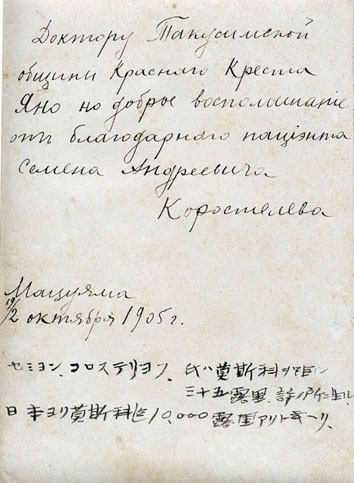 Доктору Такусимской
общины Краснаго Креста
Яно на доброе воспоминаніе
отъ благодарнаго паціэнта
Семена Андреевича
Коростелева
Мацуяма
19/2 октября 1905 г.
セミヨン、コロステリヨフ、氏ハ莫斯科ヲ
三十五露里
日本ヨリ莫斯科迄10,000露里アリト